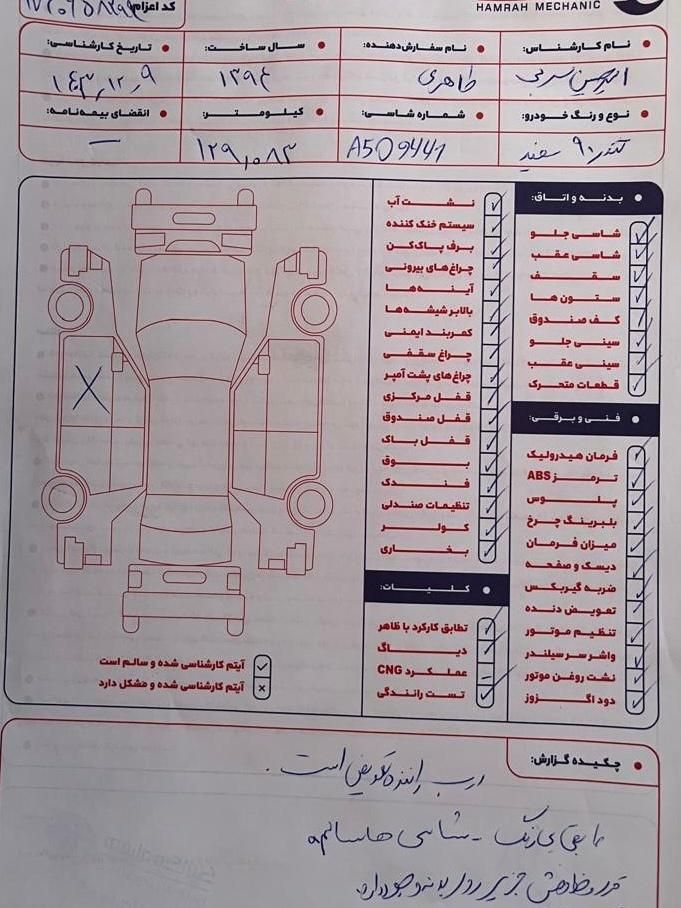 کد اعزام:
HAMRAH MECHANIC
نام کارشناس:
نام سفارش‌دهنده:
سال ساخت:
تاریخ کارشناسی:
طاهری
۱۳۹۴
۱۴۰۳,۱۲,۹
نوع و رنگ خودرو:
شماره شاسی:
کیلومتر:
انقضای بیمه‌نامه:
تندر ۹۰ سفید
A509441
۱۲۹,۰۸۳
—
بدنه و اتاق:
شاسی جلو
شاسی عقب
سقف
ستون ها
کف صندوق
سینی جلو
سینی عقب
قطعات متحرک
فنی و برقی:
فرمان هیدرولیک
ترمز ABS
پلوس
بلبرینگ چرخ
میزان فرمان
دیسک و صفحه
ضربه گیربکس
تعویض دنده
تنظیم موتور
واشر سر سیلندر
نشت روغن موتور
دود اگزوز
نشت آب
سیستم خنک کننده
برف پاک‌کن
چراغ‌های بیرونی
آینه‌ها
بالابر شیشه‌ها
کمربند ایمنی
چراغ سقفی
چراغ‌های پشت آمپر
قفل مرکزی
قفل صندوق
قفل باک
بوق
فندک
تنظیمات صندلی
کولر
بخاری
کلیات:
تطابق کارکرد با ظاهر
دیاگ
عملکرد CNG
تست رانندگی
X
آیتم کارشناسی شده و سالم است
آیتم کارشناسی شده و مشکل دارد
چکیده گزارش:
درب راننده تعویض است.
مابقی بی رنگ - شاسی ها سالم